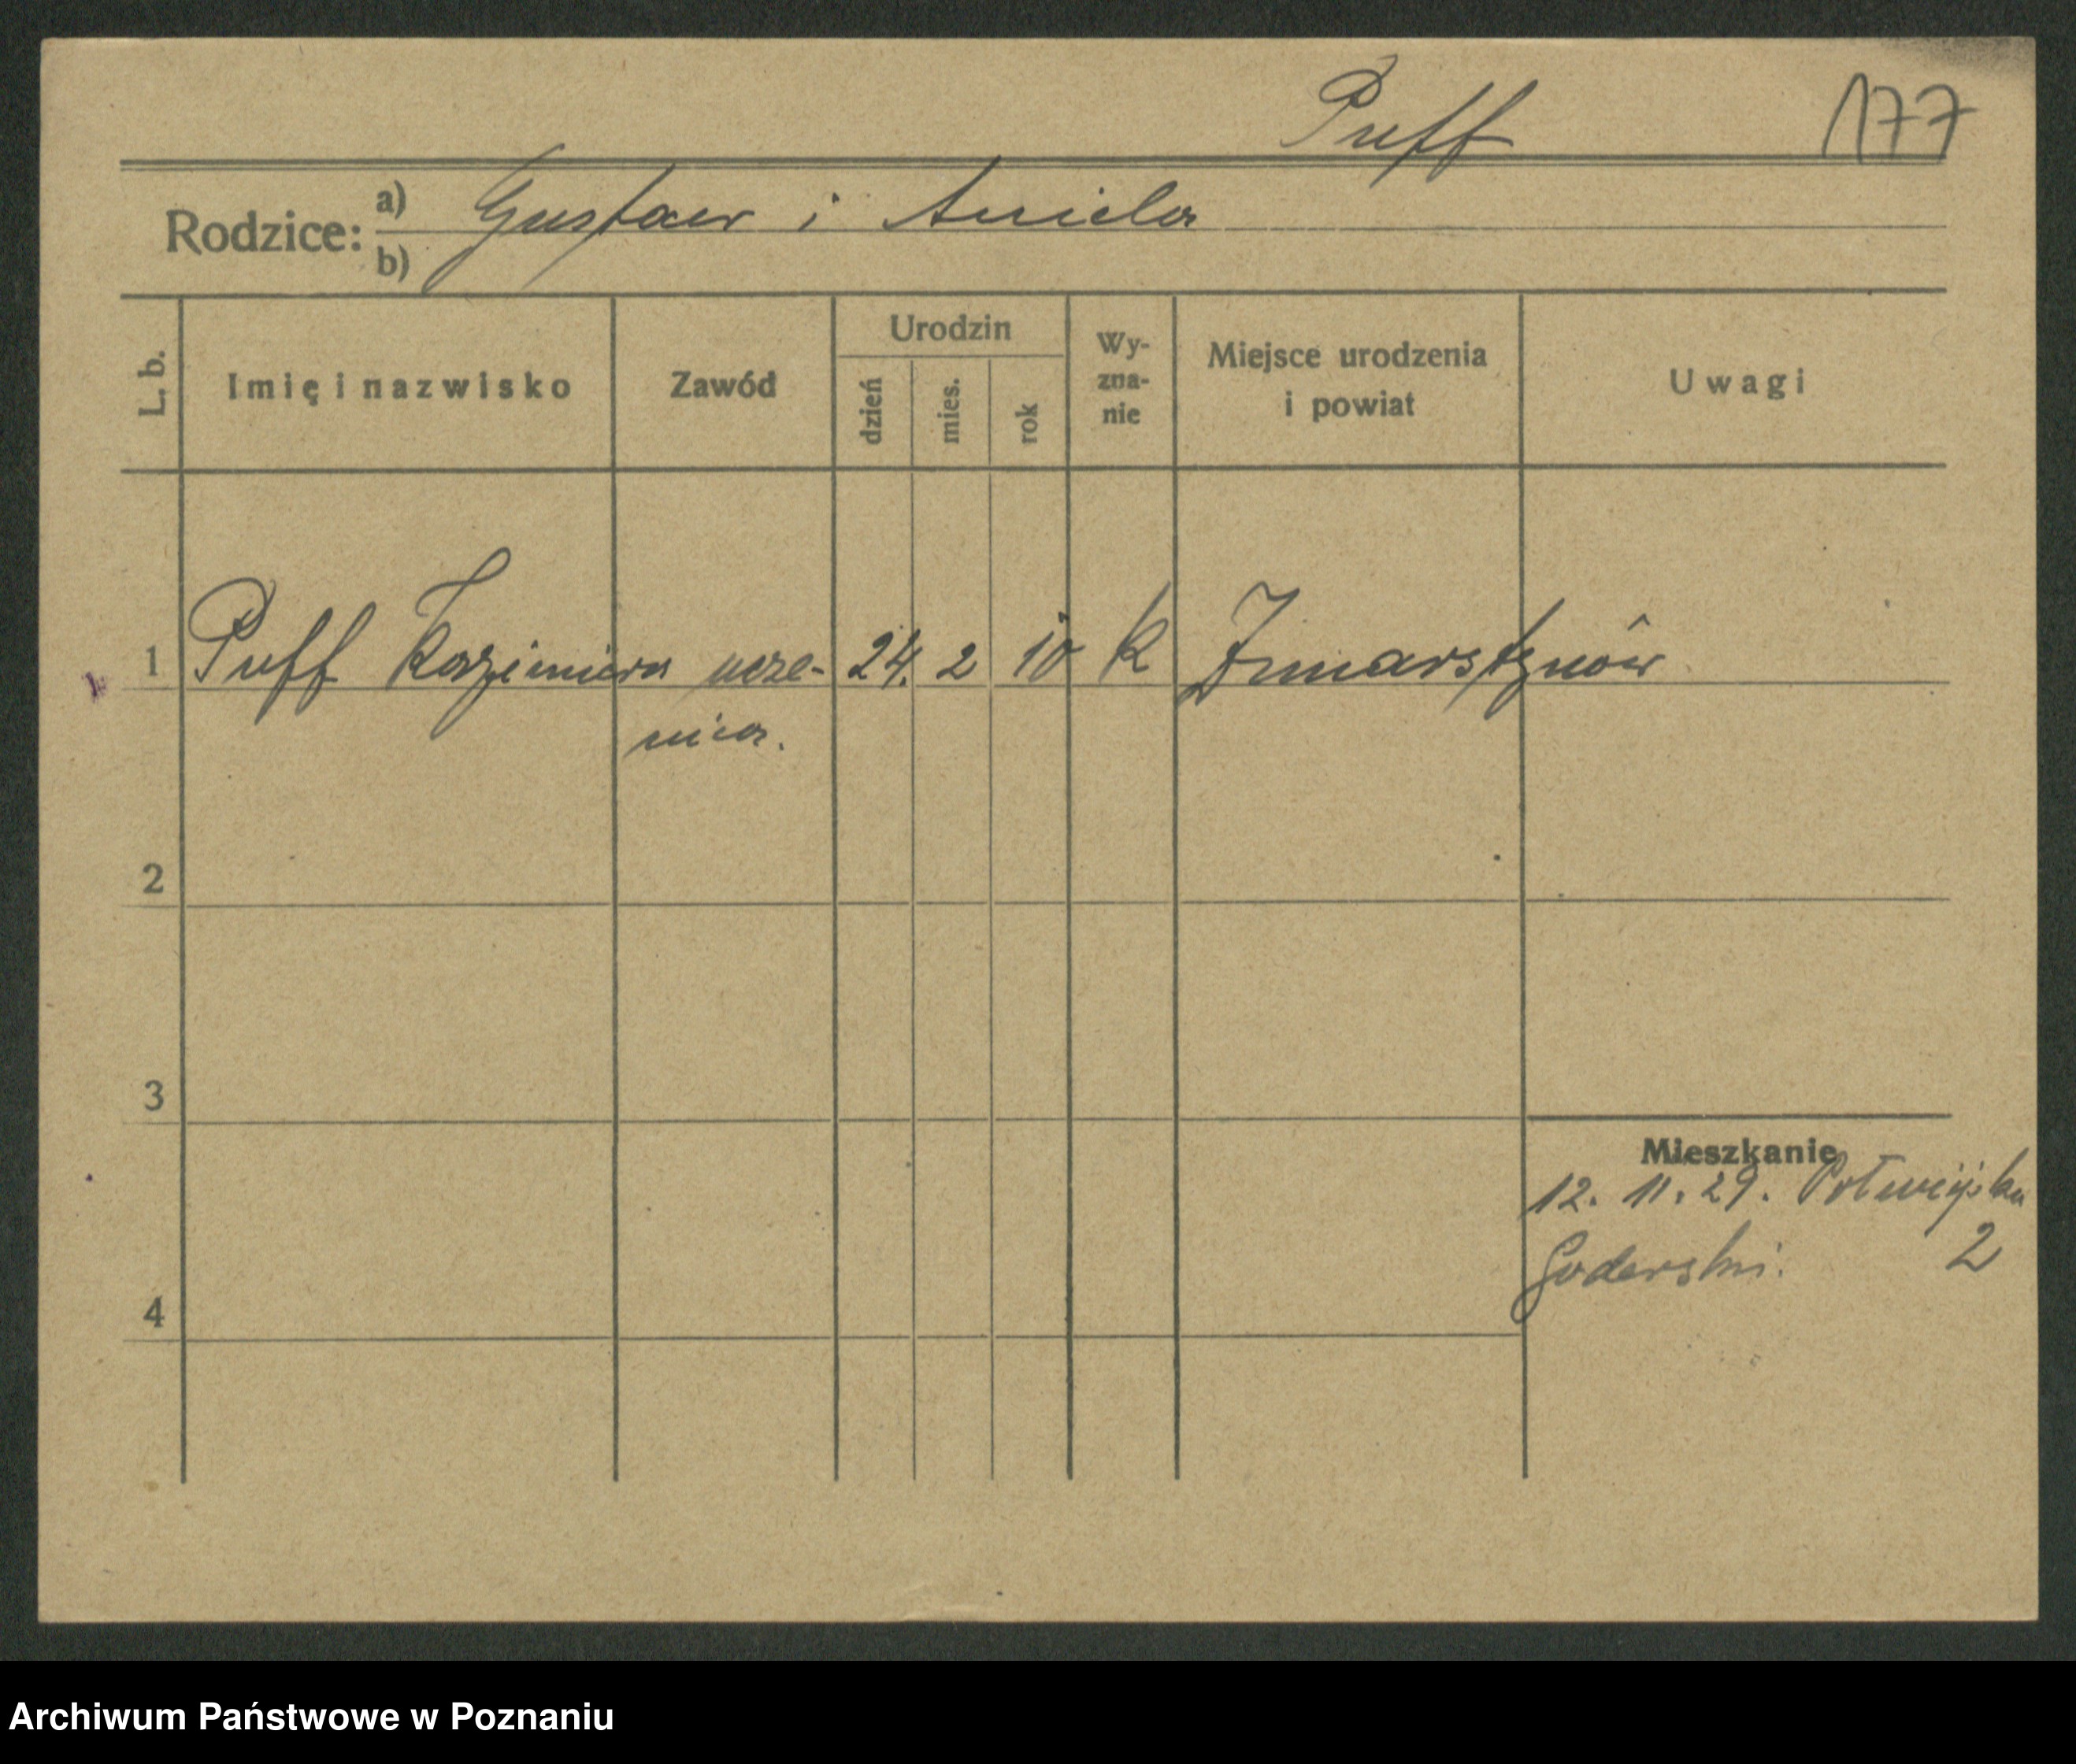 Puff 177
Rodzice: a) Gustaw i Aniela
b)
L. b. Imię i nazwisko Zawód Urodzin dzień mies. rok Wy- zna- nie Miejsce urodzenia i powiat Uwagi
1 Puff Kazimiera ucze- 24. 2 10 k Zmarstynów
nica.
2
3
Mieszkanie
12. 11. 29. Półwiejska
2
4
Archiwum Państwowe w Poznaniu